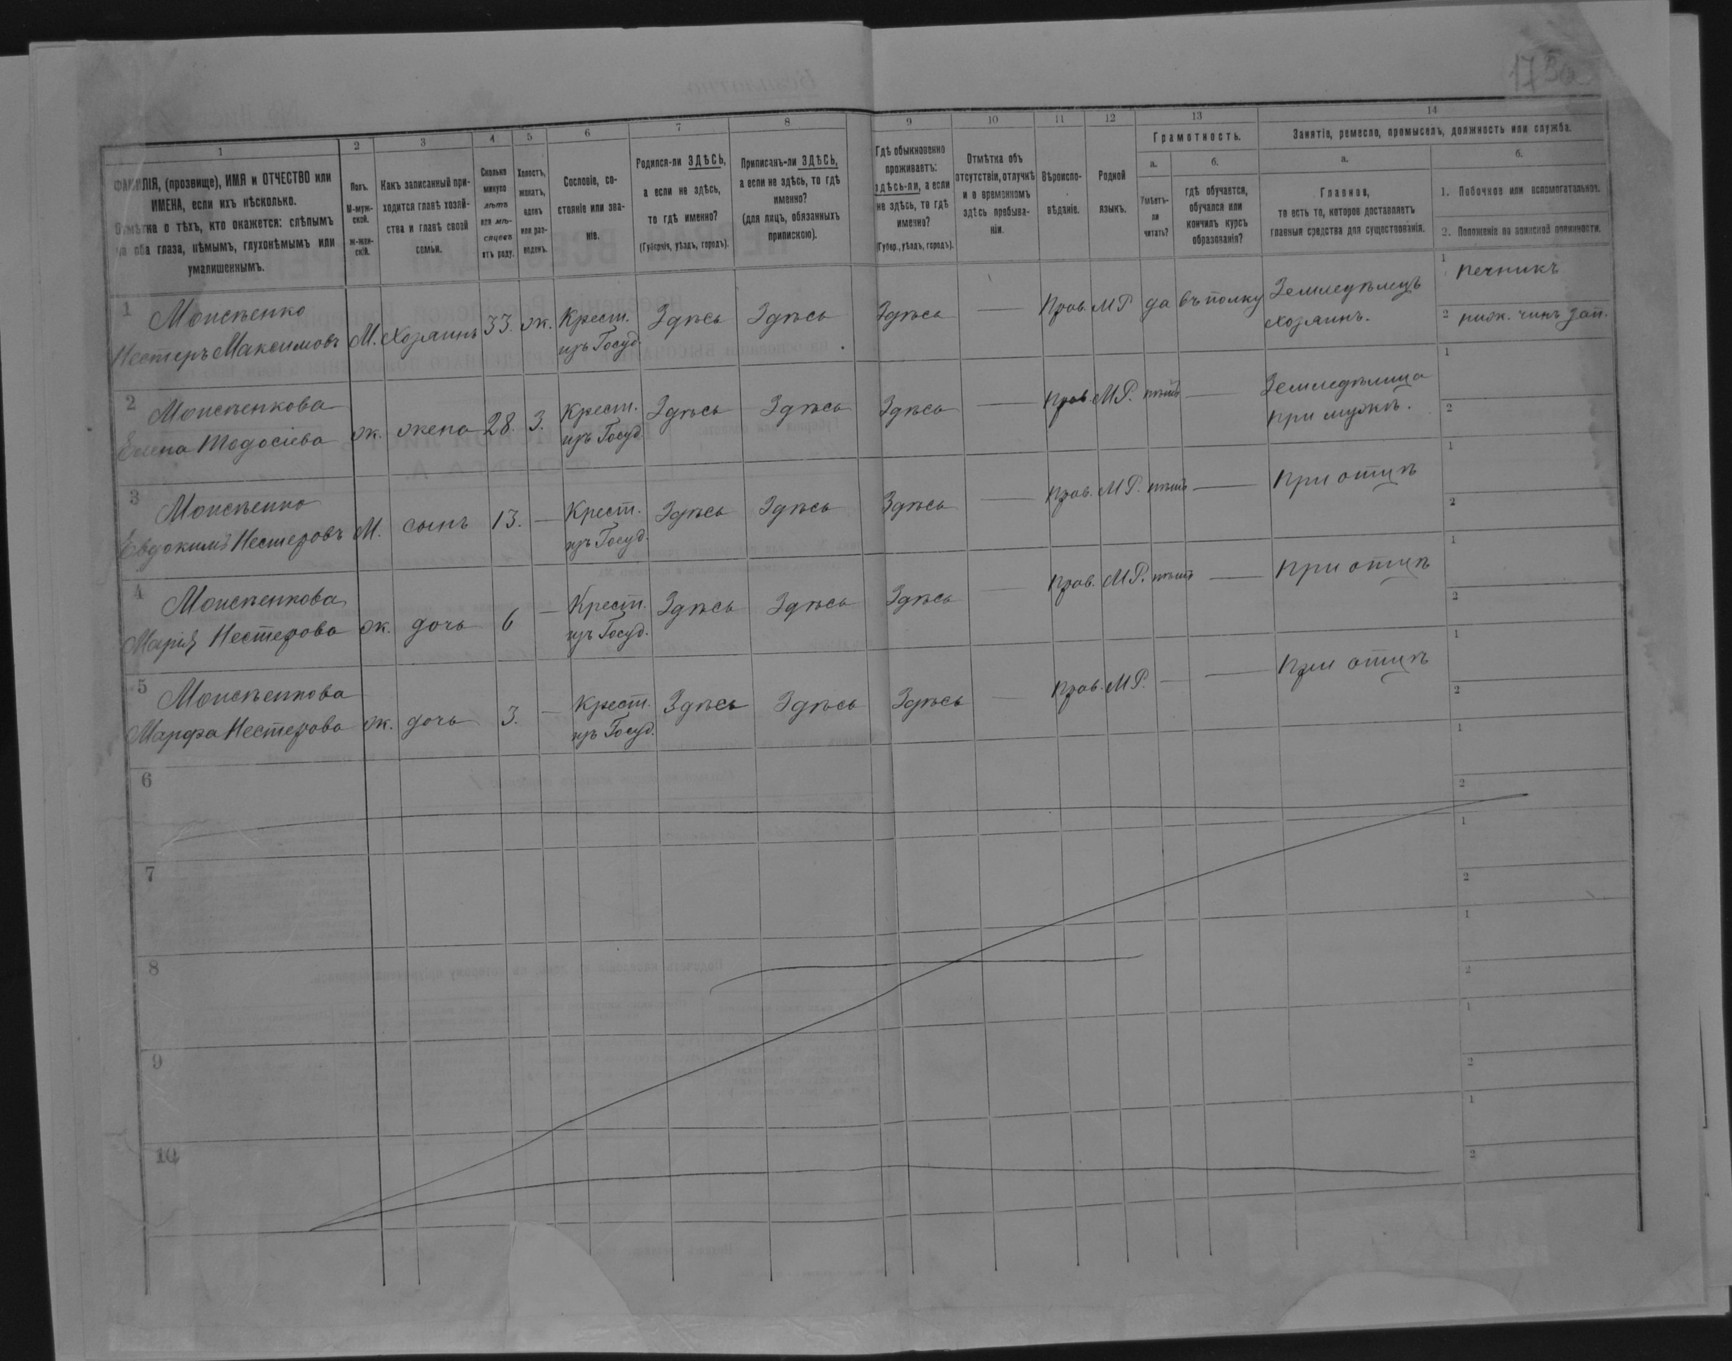 1
2
3
4
5
6
7
8
9
10
11
12
13
14
ФАМИЛІЯ, (прозвище), ИМЯ и ОТЧЕСТВО или
ИМЕНА, если ихъ нѣсколько.
Отмѣтка о тѣхъ, кто окажется: слѣпымъ
на оба глаза, нѣмымъ, глухонѣмымъ или
умалишеннымъ.
Полъ.
М-муж-
ской.
Ж-жен-
скій.
Какъ записанный при-
ходится главѣ хозяй-
ства и главѣ своей
семьи.
Сколько
минуло
лѣтъ
или мѣ-
сяцевъ
отъ роду.
Холостъ,
женатъ,
вдовъ
или раз-
веденъ.
Сословіе, со-
стояніе или зва-
ніе.
Родился-ли ЗДѢСЬ,
а если не здѣсь,
то гдѣ именно?
(Губернія, уѣздъ, городъ).
Приписанъ-ли ЗДѢСЬ,
а если не здѣсь, то гдѣ
именно?
(для лицъ, обязанныхъ
припискою).
Гдѣ обыкновенно
проживаетъ:
здѣсь-ли, а если
не здѣсь, то гдѣ
именно?
(Губер., уѣздъ, городъ).
Отмѣтка объ
отсутствіи, отлучкѣ
и о временномъ
здѣсь пребыва-
ніи.
Вѣроиспо-
вѣданіе.
Родной
языкъ.
Грамотность.
а.
б.
Умѣетъ-
ли
читать?
гдѣ обучается,
обучался или
кончилъ курсъ
образованія?
Занятіе, ремесло, промыселъ, должность или служба.
а.
б.
Главное,
то есть то, которое доставляетъ
главныя средства для существованія.
1. Побочное или вспомогательное.
2. Положеніе по воинской повинности.
1
Моисѣенко
Нестеръ Максимовъ
М.
Хозяинъ
33.
ж.
Крест.
изъ Госуд.
Здѣсь
Здѣсь
Здѣсь
—
Прав.
МР
да
въ полку
Земледѣлецъ
хозяинъ.
1
печникъ
2
ниж. чинъ зап.
2
Моисѣенкова
Елена Тведосіева
ж.
жена
28.
З.
Крест.
изъ Госуд.
Здѣсь
Здѣсь
Здѣсь
—
Прав.
МР.
нѣтъ
—
Земледѣлица
при мужѣ.
1
2
3
Моисѣенко
Евдокимъ Нестеровъ
М.
сынъ
13.
—
Крест.
изъ Госуд.
Здѣсь
Здѣсь
Здѣсь
—
Прав.
МР.
нѣтъ
—
При отцѣ
1
2
4
Моисѣенкова
Марія Нестерова
ж.
дочь
6
—
Крест.
изъ Госуд.
Здѣсь
Здѣсь
Здѣсь
—
Прав.
МР.
нѣтъ
—
При отцѣ
1
2
5
Моисѣенкова
Марфа Нестерова
ж.
дочь
3.
—
Крест.
изъ Госуд.
Здѣсь
Здѣсь
Здѣсь
—
Прав.
МР.
—
—
При отцѣ
1
2
6
1
2
7
1
2
8
1
2
9
1
2
10
1
2